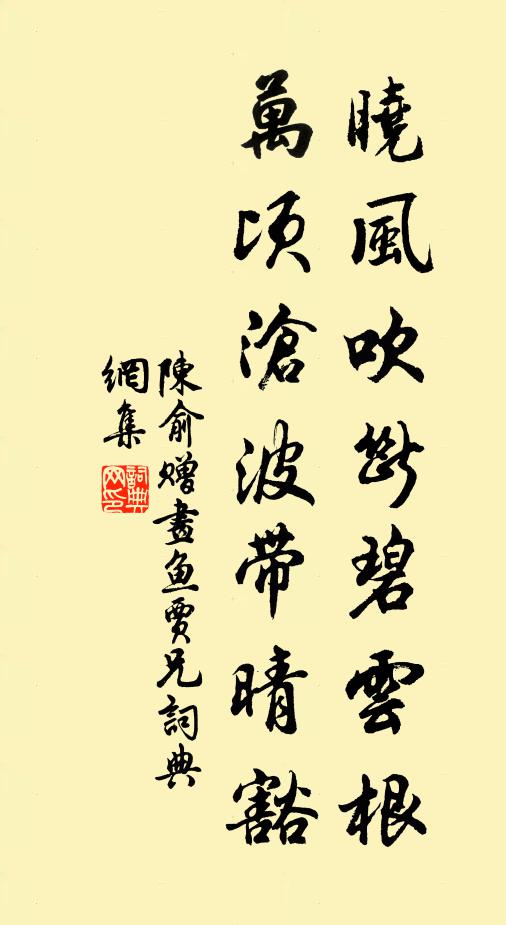 曉風吹斷碧雲根
萬頃滄波帶晴豁
陳俞贈畫魚賈兄詞典
網集
詞典網印